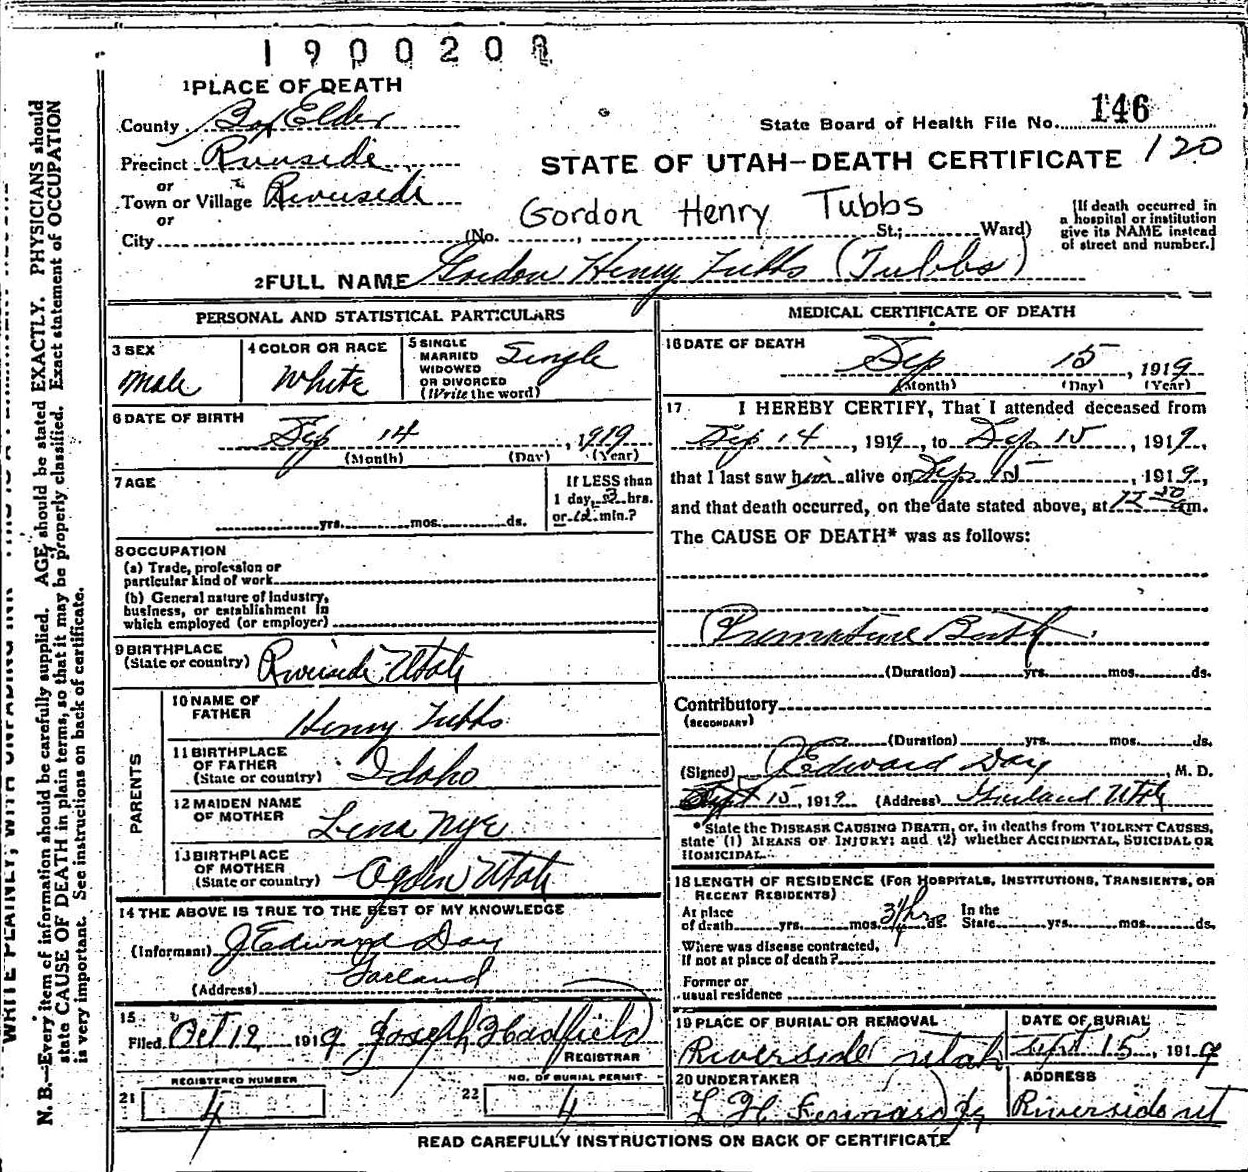 1900208
1 PLACE OF DEATH
County Box Elder
State Board of Health File No. 146
Precinct Riverside
STATE OF UTAH—DEATH CERTIFICATE 120
or
Town or Village Riverside
or
Gordon Henry Tubbs
City (No. , St.; Ward)
[If death occurred in
a hospital or institution
give its NAME instead
of street and number.]
2 FULL NAME Gordon Henry Tubbs (Tubbs)
PERSONAL AND STATISTICAL PARTICULARS
3 SEX
Male
4 COLOR OR RACE
White
5 SINGLE
MARRIED
WIDOWED
OR DIVORCED
(Write the word)
Single
6 DATE OF BIRTH
Sep 14, 1919
(Month) (Day) (Year)
7 AGE
yrs. mos. ds.
If LESS than
1 day, 3 hrs.
or min.?
8 OCCUPATION
(a) Trade, profession or
particular kind of work
(b) General nature of Industry,
business, or establishment in
which employed (or employer)
9 BIRTHPLACE
(State or country) Riverside Utah
PARENTS
10 NAME OF
FATHER Henry Tubbs
11 BIRTHPLACE
OF FATHER
(State or country) Idaho
12 MAIDEN NAME
OF MOTHER Lena Nye
13 BIRTHPLACE
OF MOTHER
(State or country) Ogden Utah
14 THE ABOVE IS TRUE TO THE BEST OF MY KNOWLEDGE
(Informant) J Edward Day
(Address) Garland
15
Filed Oct 12 1919 Joseph Hadfield
REGISTRAR
REGISTERED NUMBER
21 4
NO. OF BURIAL PERMIT
22 4
MEDICAL CERTIFICATE OF DEATH
16 DATE OF DEATH
Sep 15, 1919
(Month) (Day) (Year)
17 I HEREBY CERTIFY, That I attended deceased from
Sep 14, 1919, to Sep 15, 1919,
that I last saw him alive on Sep 15, 1919,
and that death occurred, on the date stated above, at 12 30 am.
The CAUSE OF DEATH* was as follows:
Premature Birth
(Duration) yrs. mos. ds.
Contributory
(SECONDARY)
(Duration) yrs. mos. ds.
(Signed) J Edward Day, M. D.
Sept 15, 1919 (Address) Garland Utah
*State the DISEASE CAUSING DEATH, or, in deaths from VIOLENT CAUSES,
state (1) MEANS OF INJURY; and (2) whether ACCIDENTAL, SUICIDAL OR
HOMICIDAL.
18 LENGTH OF RESIDENCE (FOR HOSPITALS, INSTITUTIONS, TRANSIENTS, OR
RECENT RESIDENTS)
At place
of death yrs. mos. 3 1/4 hrs ds.
In the
State yrs. mos. ds.
Where was disease contracted,
If not at place of death?
Former or
usual residence
19 PLACE OF BURIAL OR REMOVAL
Riverside Utah
DATE OF BURIAL
Sept 15, 1919
20 UNDERTAKER
ADDRESS
Riverside ut
READ CAREFULLY INSTRUCTIONS ON BACK OF CERTIFICATE
N. B.—Every item of information should be carefully supplied. AGE should be stated EXACTLY. PHYSICIANS should
state CAUSE OF DEATH in plain terms, so that it may be properly classified. Exact statement of OCCUPATION
is very important. See instructions on back of certificate.